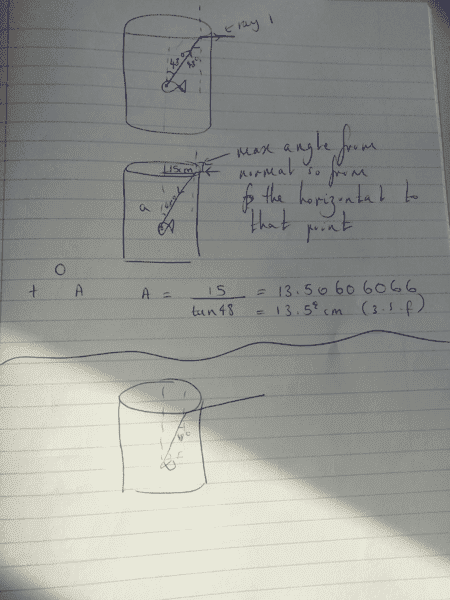 ray 1
48°
48°
max angle from
normal so from
the horizontal to
that point
15cm
a
O
t A A = 15 = 13.50606066
tan48 = 13.5 cm (3.s.f)
48°